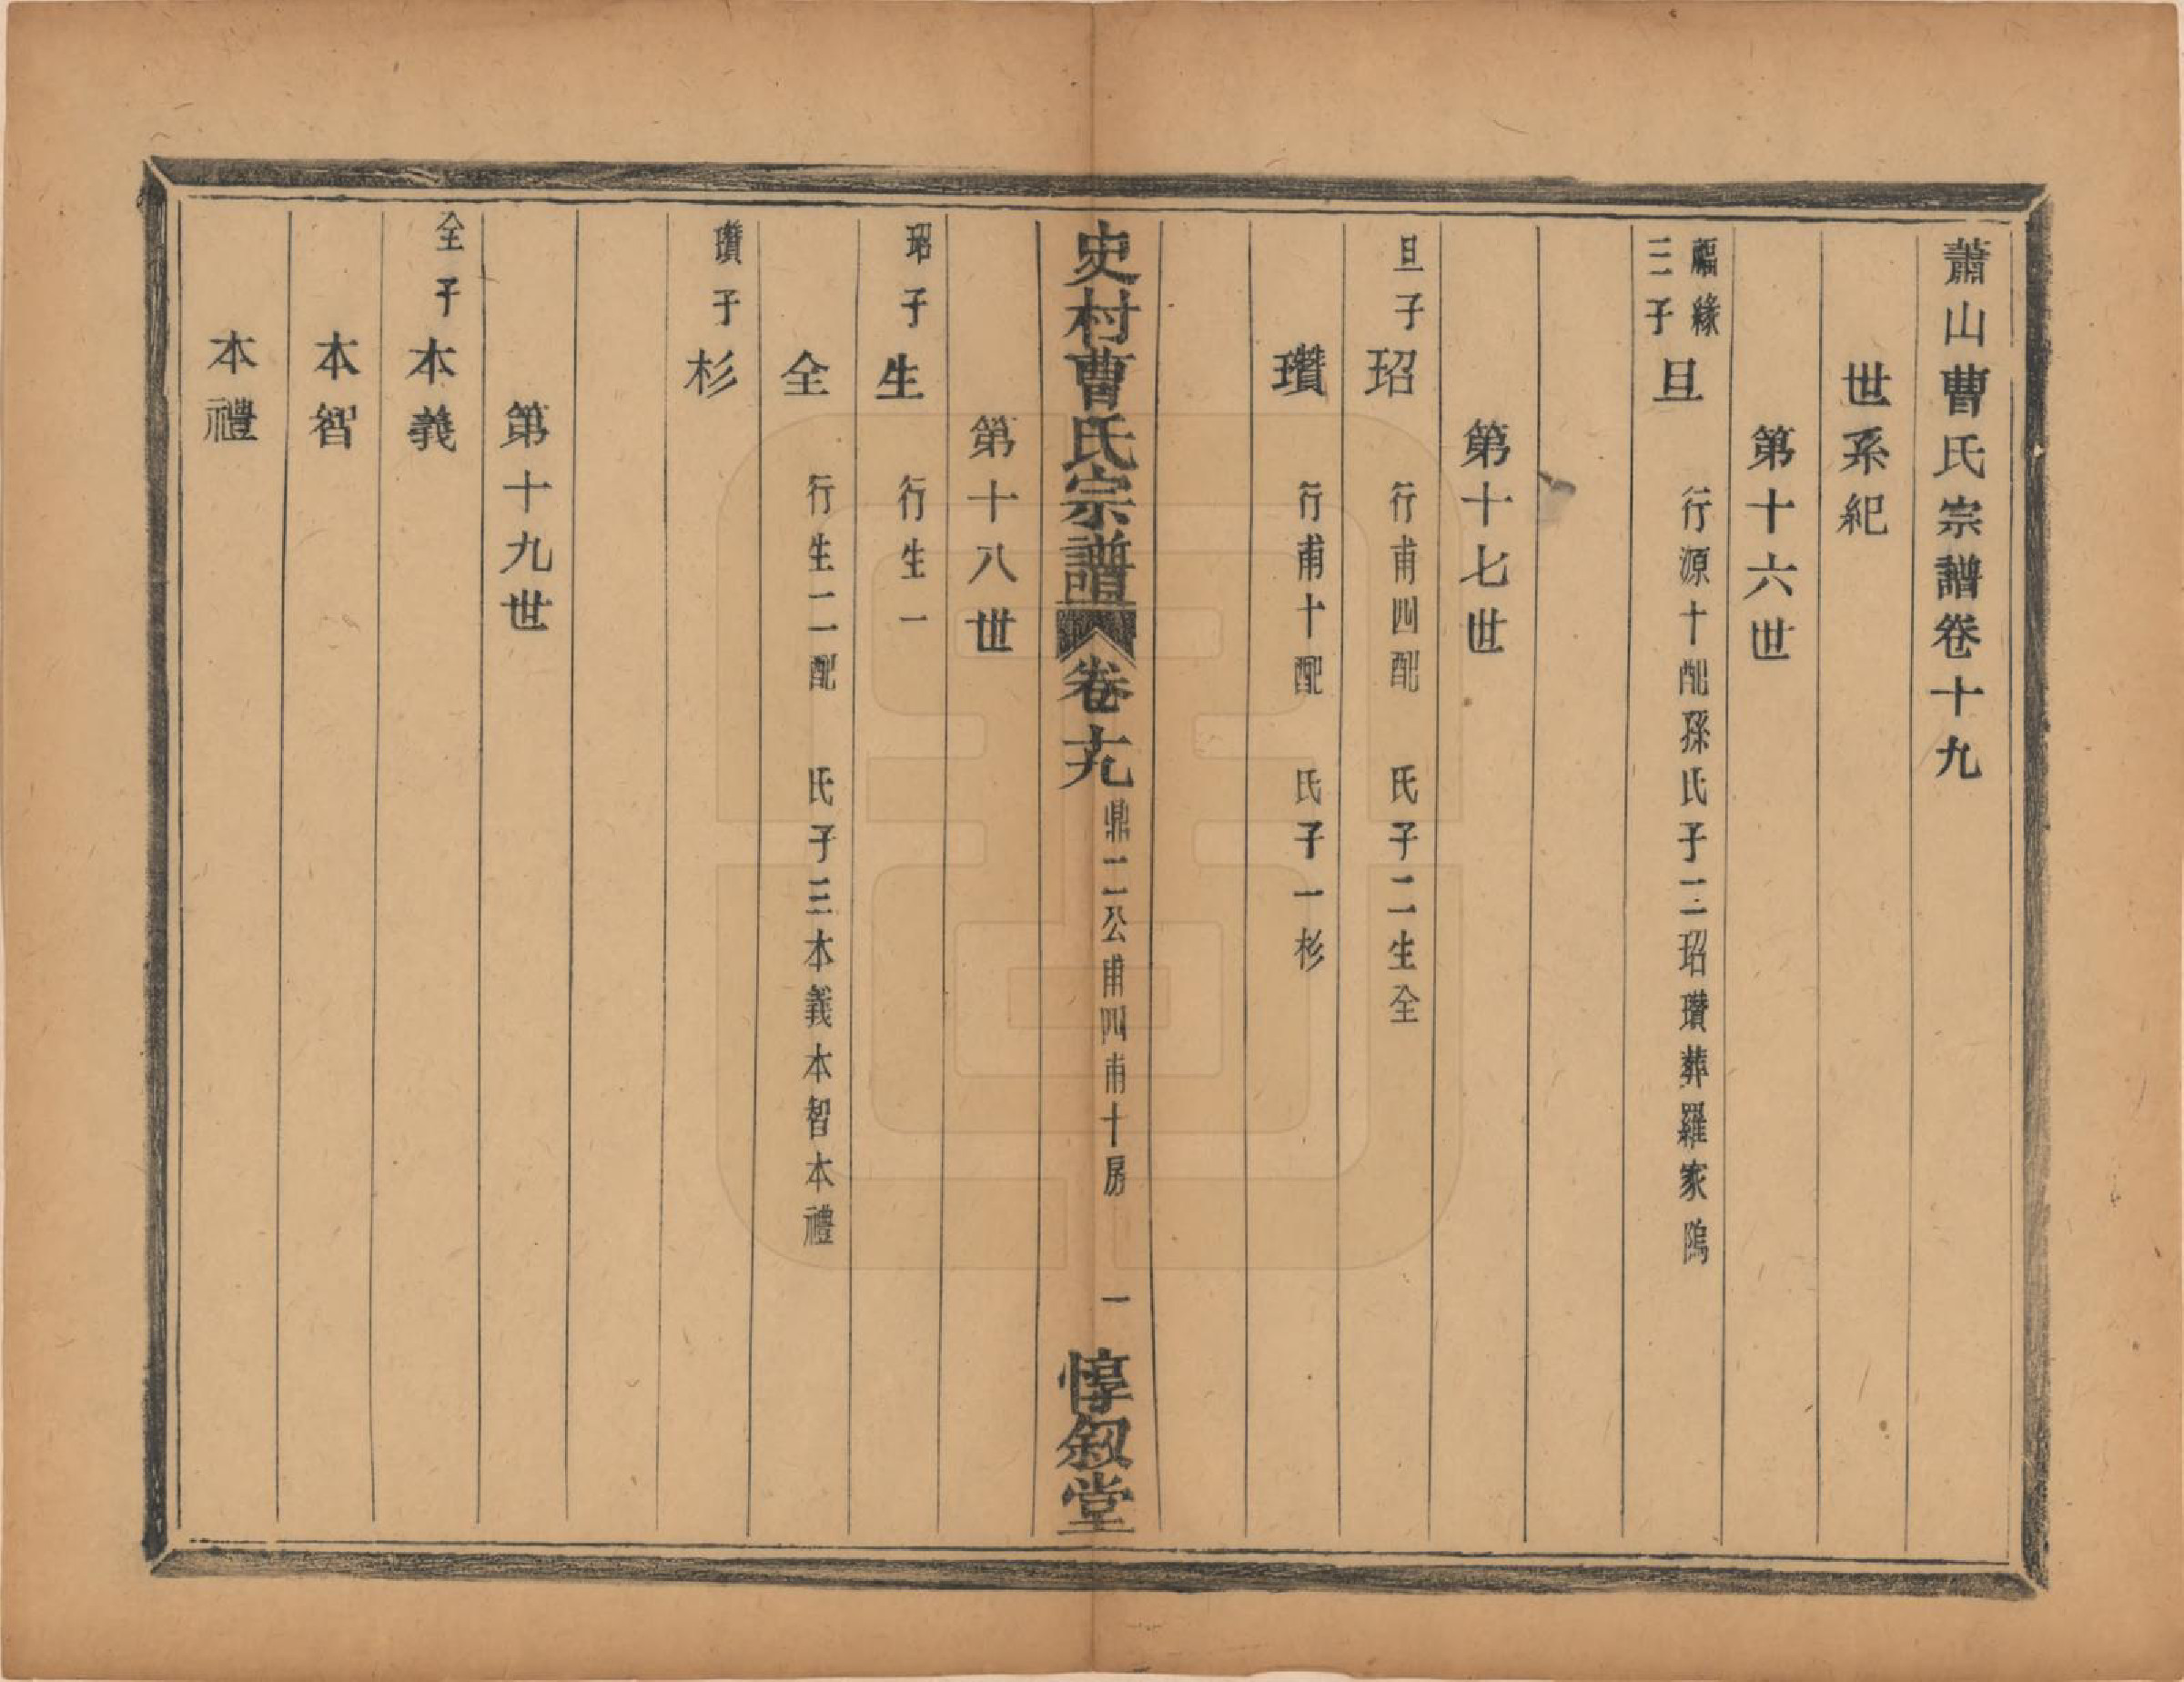 蕭山曹氏宗譜卷十九
世系紀
第十六世
福緣
三子
旦 行源十配孫氏子二玿瓚葬羅家隖
第十七世
旦子 玿 行甫四配 氏子二生全
瓚 行甫十配 氏子一杉
史村曹氏宗譜 卷十九 鼎二公甫四甫十房 一 惇敘堂
第十八世
玿子 生 行生一
全 行生二配 氏子三本義本智本禮
瓚子 杉
第十九世
全子 本義
本智
本禮